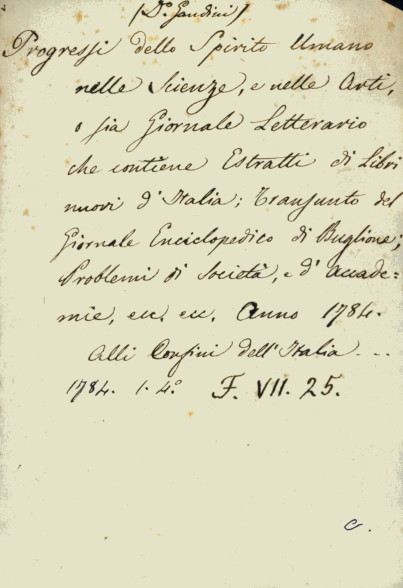 (Dn. Gandini)
Progressi dello Spirito Umano
nelle Scienze, e nelle Arti,
o sia Giornale Letterario
che contiene Estratti di Libri
nuovi d'Italia; Transunto del
Giornale Enciclopedico di Buglione;
Problemi di Società, e d'accade=
mie, ecc. ecc. Anno 1784.
Alli Confini dell'Italia ...
1784. 1. 4° F. VII. 25.
C.